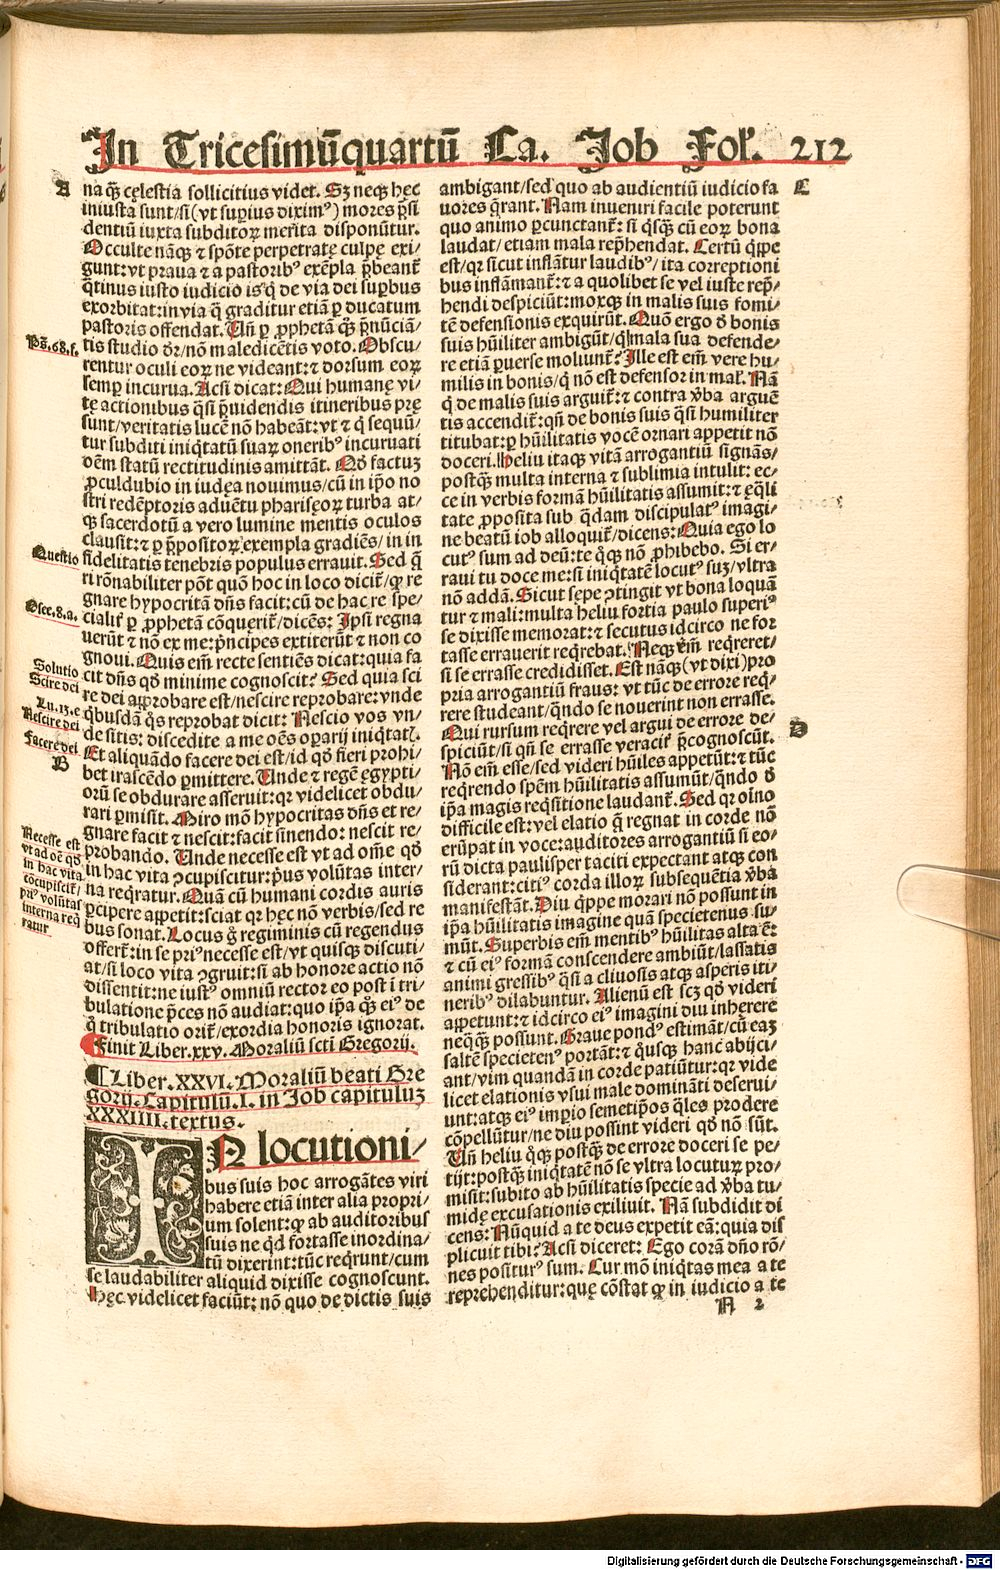 In Tricesimũquartũ Ca. Job Fol. 212
A
na q̃ȝ cęlestia sollicitius videt. Sȝ neqȝ hęc
iniusta sunt/si (vt supius diximꝰ) mores p̃si
dentiũ iuxta subditoꝝ merita disponũtur.
Occulte nãqȝ ⁊ spõte perpetratę culpę exi/
gunt: vt praua ⁊ a pastoribꝰ exẽpla p̃beant̃
q̃tinus iusto iudicio is q̃ de via dei supbus
exorbitat: in via q̃ graditur etiã p ducatum
pastoris offendat. Vñ p ꝓphetã q̃ȝ p̃nũciã/
Ps̃. 68. f.
tis studio dr̃/nõ maledicẽtis voto. Obscu/
rentur oculi eoꝝ ne videant: ⁊ dorsum eoꝝ
semp incurua. Acsi dicat: Qui humanę vi/
tę actionibus q̃si p̃uidendis itineribus prę
sunt/veritatis lucẽ nõ habeãt: vt ⁊ q̃ sequũ/
tur subditi iniq̃tatũ suaꝝ oneribꝰ incuruati
oẽm statũ rectitudinis amittãt. Qð factuȝ
ꝓculdubio in iudęa nouimus/cũ in ip̃o no
stri redẽptoris aduẽtu phariseoꝝ turba at/
qȝ sacerdotũ a vero lumine mentis oculos
clausit: ⁊ p p̃positoꝝ exempla gradiẽs/in in
Questio
fidelitatis tenebris populus errauit. Sed q̃
ri rõnabiliter põt quõ hoc in loco dicit̃/ꝙ re
gnare hypocritã dñs facit: cũ de hac re spe/
Osee. 8. a.
cialit̃ p ꝓphetã cõquerit̃/dicẽs: Ipsi regna
uerũt ⁊ nõ ex me: p̃ncipes extiterũt ⁊ non co
gnoui. Quis em̃ recte sentiẽs dicat: quia fa
Solutio
cit dñs qð minime cognoscit? Sed quia sci
Scire dei
re dei approbare est/nescire reprobare: vnde
Lu. 13. e
q̃busdã q̃s reprobat dicit: Nescio vos vn/
Nescire dei
de sitis: discedite a me oẽs oparij iniq̃tatꝭ.
Facere dei
Et aliquãdo facere dei est/id qð fieri prohi/
B
bet irascẽdo pmittere. Vnde ⁊ regẽ ęgypti/
orũ se obdurare asseruit: qꝛ videlicet obdu/
rari pmisit. Miro mõ hypocritas dñs et re/
gnare facit ⁊ nescit: facit sinendo: nescit re/
Necesse est
vt ad oẽ qð
in hac vita
cõcupiscit̃/
priꝰ volũtas
interna req̃
ratur
probando. Vnde necesse est vt ad om̃e qð
in hac vita ꝯcupiscitur: p̃us volũtas inter/
na req̃ratur. Quã cũ humani cordis auris
pcipere appetit: sciat qꝛ hęc nõ verbis/sed re
bus sonat. Locus g̃ regiminis cũ regendus
offert̃: in se priꝰ necesse est/vt quisqȝ discuti/
at/si loco vita ꝯgruit: si ab honore actio nõ
dissentit: ne iustꝰ omniũ rector eo post ĩ tri/
bulatione p̃ces nõ audiat: quo ip̃a q̃ȝ eiꝰ de
q̃ tribulatio orit̃/exordia honoris ignorat.
Finit Liber. xxv. Moraliũ scti Gregorij.
¶ Liber. XXVI. Moraliũ beati Gre
gorij. Capitulũ. I. in Job capituluȝ
XXXIIII. textus.
IN locutioni/
bus suis hoc arrogãtes viri
habere etiã inter alia propri/
um solent: ꝙ ab auditoribus
suis ne q̃d fortasse inordina/
tũ dixerint: tũc req̃runt/cum
se laudabiliter aliquid dixisse cognoscunt.
Hęc videlicet faciũt: nõ quo de dictis suis
C
ambigant/sed quo ab audientiũ iudicio fa
uores q̃rant. Nam inueniri facile poterunt
quo animo pcunctant̃: si q̃sq̃ȝ cũ eoꝝ bona
laudat/etiam mala rep̃hendat. Certũ q̃ppe
est/qꝛ sicut inflãtur laudibꝰ/ita correptioni
bus inflãmant̃: ⁊ a quolibet se vel iuste rep̃/
hendi despiciũt: moxqȝ in malis suis fomi/
tẽ defensionis exquirũt. Quõ ergo ð bonis
suis hũiliter ambigũt/q̃ mala sua defende/
re etiã puerse moliunt̃? Ille est em̃ vere hu/
milis in bonis/q̃ nõ est defensor in mal̃. Nã
q̃ de malis suis arguit̃: ⁊ contra v̾ba arguẽ
tis accendit̃: qñ de bonis suis q̃si humiliter
titubat: p hũilitatis vocẽ ornari appetit nõ
doceri. Heliu itaqȝ vitã arrogantiũ signãs/
postq̃ȝ multa interna ⁊ sublimia intulit: ec/
ce in verbis formã hũilitatis assumit: ⁊ ęq̃li
tate ꝓposita sub q̃dam discipulatꝰ imagi/
ne beatũ iob alloquit̃/dicens: Quia ego lo
cutꝰ sum ad deũ: te q̃qȝ nõ ꝓhibebo. Si er/
raui tu doce me: si iniq̃tatẽ locutꝰ suȝ/vltra
nõ addã. Sicut sępe ꝯtingit vt bona loquã
tur ⁊ mali: multa heliu fortia paulo superiꝰ
se dixisse memorat: ⁊ secutus idcirco ne for
tasse errauerit req̃rebat. Neqȝ em̃ req̃reret/
si se errasse credidisset. Est nãqȝ (vt dixi) pro
pria arrogantiũ fraus: vt tũc de errore req̃/
rere studeant/q̃ndo se nouerint non errasse.
D
Qui rursum req̃rere vel argui de errore de/
spiciũt/si qñ se errasse veracit̃ p̃cognoscũt.
Nõ em̃ esse/sed videri hũiles appetũt: ⁊ tũc
req̃rendo spẽm hũilitatis assumũt/q̃ndo ð
ip̃a magis req̃sitione laudant̃. Sed qꝛ oĩno
difficile est: vel elatio q̃ regnat in corde nõ
erũpat in voce: auditores arrogantiũ si eo/
rũ dicta paulisper taciti expectant atqȝ con
siderant: citiꝰ corda illoꝝ subsequẽtia v̾ba
manifestãt. Diu q̃ppe morari nõ possunt in
ip̃a hũilitatis imagine quã specietenus su/
mũt. Superbis em̃ mentibꝰ hũilitas alta ẽ:
⁊ cũ eiꝰ formã conscendere ambiũt/lassatis
animi gressibꝰ q̃si a cliuosis atqȝ asperis iti/
neribꝰ dilabuntur. Alienũ est scȝ qð videri
appetunt: ⁊ idcirco eiꝰ imagini diu inherere
neqq̃ȝ possunt. Graue pondꝰ estimãt/cũ eaȝ
saltẽ specietenꝰ portãt: ⁊ q̃usqȝ hanc abijci/
ant/vim quandã in corde patiũtur: qꝛ vide
licet elationis vsui male dominãti deserui/
unt: atqȝ eiꝰ imperio semetip̃os q̃les prodere
cõpellũtur/ne diu possint videri qð nõ sũt.
Vñ heliu q̃qȝ postq̃ȝ de errore doceri se pe/
tijt: postq̃ȝ iniq̃tatẽ nõ se vltra locutuꝝ pro/
misit: subito ab hũilitatis specie ad v̾ba tu/
midę excusationis exiliuit. Nã subdidit di
cens: Nũquid a te deus expetit eã: quia dis
plicuit tibi? Acsi diceret: Ego corã dño rõ/
nes positurꝰ sum. Cur mõ iniq̃tas mea a te
reprehenditur: quę cõstat ꝙ in iudicio a te
N 2
Digitalisierung gefördert durch die Deutsche Forschungsgemeinschaft - DFG